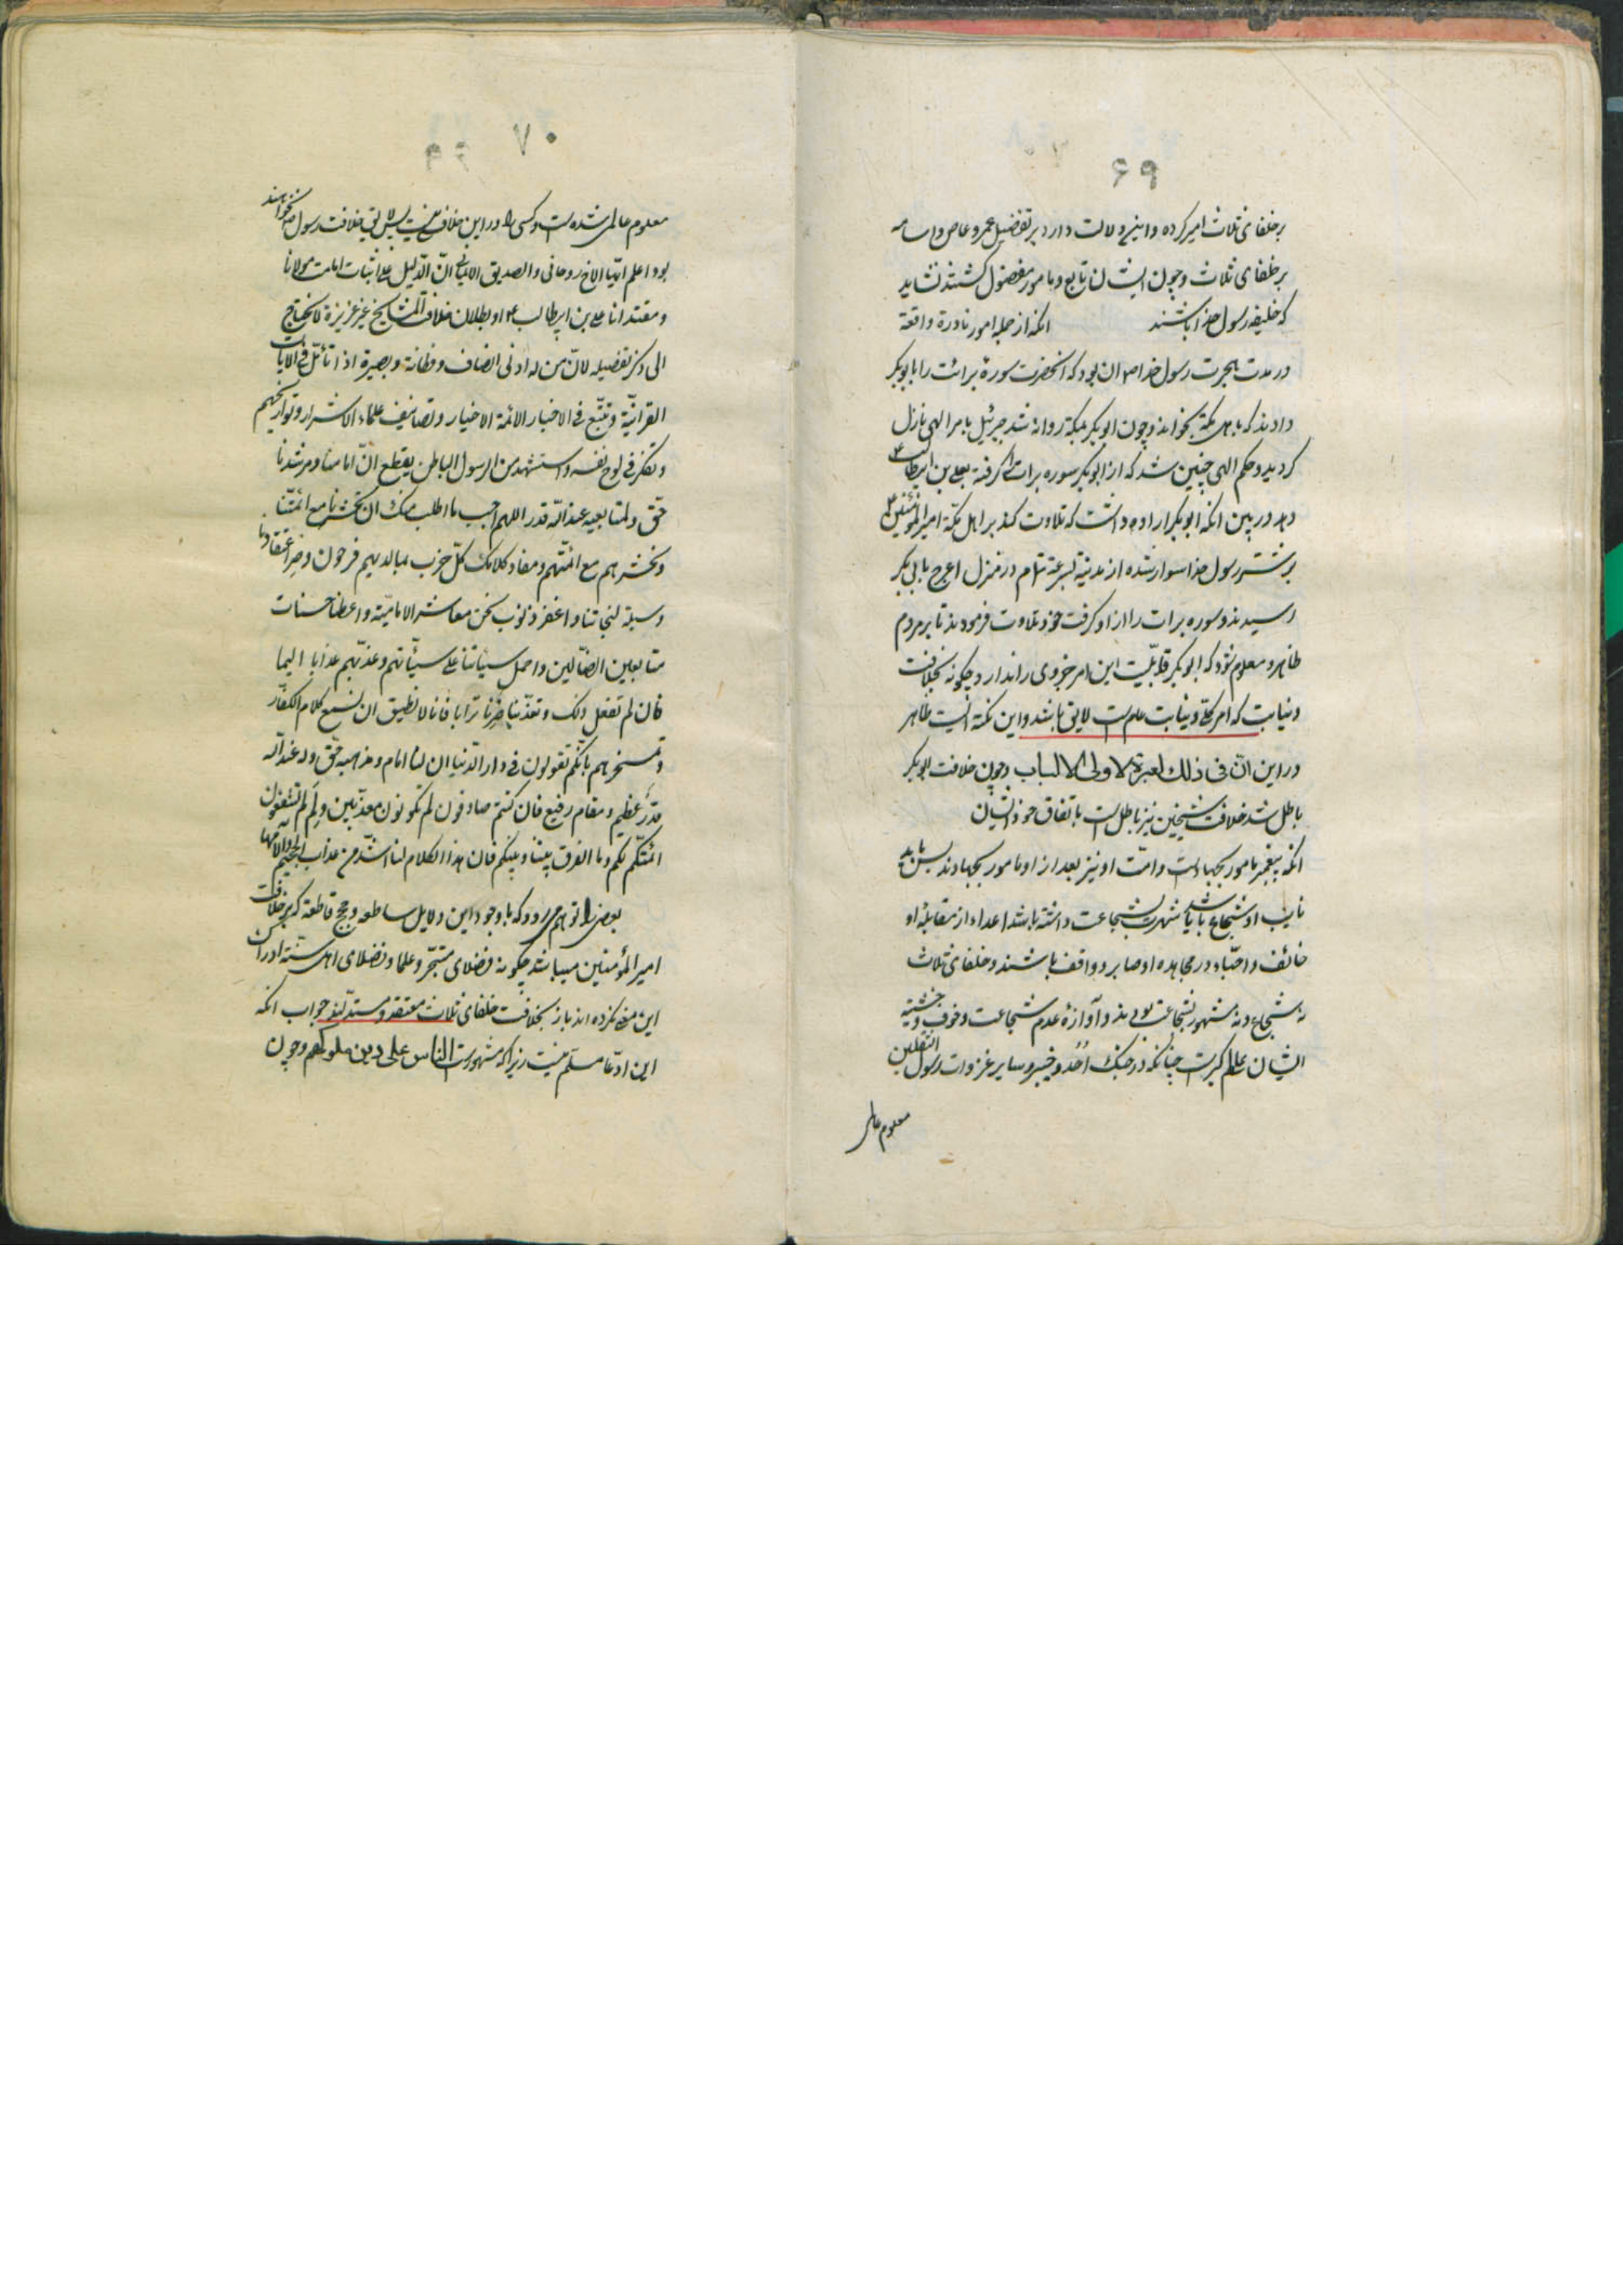 ۶۹
بر خلفای ثلاث امیر کرده و این دلالت دارد بر تفضیل عمرو عاص و اسامه
بر خلفای ثلاث و چون ایشان تابع و مامور مفضول گشتند نشاید
که خلیفه رسول خدا باشند انکه از جمله امور نادرة واقعة
در مدت هجرت رسول خدا ص ان بود که انحضرت سورهٔ برائت را بابوبکر
دادند که باهل مکة بخواند و چون ابوبکر بمکة روانه شد جبرئیل بامر الهی نازل
کردید و حکم الهی چنین شد که از ابوبکر سوره برات را کرفته بعلی بن ابیطالب ع
دهد در بین انکه ابوبکر اراده داشت که تلاوت کند بر اهل مکة امیر المؤمنین ع
بر شتر رسول خدا سوار شده از مدینة بسرعة تمام در منزل اعرج بابی بکر
رسیدند و سوره برات را از او کرفت خود تلاوت فرمودند تا بر مردم
ظاهر و معلوم شود که ابوبکر قابلیّت این امر جزوی را ندارد چکونه بخلافت
و نیابت که امر کلی و نیابت عام است لایق باشد و این نکتة ایست ظاهر
و در این انّ فی ذلك لعبرة لاولی الالباب و چون خلافت ابوبکر
باطل شد خلافت شیخین نیز باطل است باتفاق خود ایشان
انکه پیغمبر مامور بجهاد است و امّت او نیز بعد از او مامور بجهادند پس باید
نایب او شجاع باشد یا شهرت بشجاعت داشته باشد اعداء از مقابلهٔ او
خائف و احبّاء در مجاهده او صابر و واقف باشند و خلفای ثلاث
نه شجاع و نه مشهور بشجاعت بودند و آوازهٔ عدم شجاعت و خوف و خشیة
ایشان عالم کیر است چنانکه در جنك اُحُد و خیبر و سایر غزوات رسول الثقلین
معلوم عالمی
۷۰
معلوم عالمی شده است و کسی را در این خلاف نیست پس لایق خلافت رسول ص نخواهند
بود و اعلم ایّها الاخ روحانی و الصدیق الایمانی انّ الدّلیل علی اثبات امامت مولانا
و مقتدانا علی بن ابیطالب ع و بطلان خلافة المشایخ غیر عزیزة لا یحتاج
الی ذکر تفضیله لانّ من له ادنی انصاف و فطانة و بصیرة اذا تأمّل فی الایات
القرانیّة و تتبّع فی الاخبار الائمة الاخیار و تصانیف علماء الاشرار و تواریخهم
و تفکّر فی لوح نفسه و استشهد من الرسول الباطن یقطع انّ امامنا و مرشدنا
حقّ و لمتابعیه عند اللّه قدر اللهم اجب ما اطلب منك ان تحشرنا مع ائمّتنا
و تحشرهم مع ائمّتهم و مفاد کلامك کلّ حزب بما لدیهم فرحون و صِر اعتقادنا
وسیلة لنجاتنا و اغفر ذنوب نحن معاشر الامامیّة و اعطنا حسنات
متابعین الضالّین و احمل سیّاتنا علی سیّأتهم و عذّبهم عذابا الیما
فان لم تفعل ذلك و تعذّبنا صِرنا ترابا فانا لا نطیق ان نسمع کلام الکفّار
و تمسخرهم بانّکم تقولون فی دار الدّنیا ان لنا امام و مذهبه حقّ وله عند اللّه
قدرٌ عظیم و مقام رفیع فان کنتم صادقون لم تکونون معذّبین و لِمَ لم تشفعون
ائمّتکم لکم و ما الفرق بیننا و بینکم فان هذا الکلام لنا اشدّ من عذاب الجحیم و الامها
بعضی را توهم می رود که باوجود این دلایل ساطعه و حجج قاطعة که بر خلافت
امیر المؤمنین میباشد چکونه فضلای متبحّر و علما و فضلای اهل سنّة ادراك
این معنی نکرده اند باز بخلافت خلفای ثلاث معتقد و مستدلّند جواب انکه
این ادّعا مسلّم نیست زیرا که مشهور است الناس علی دین ملوکهم و چون